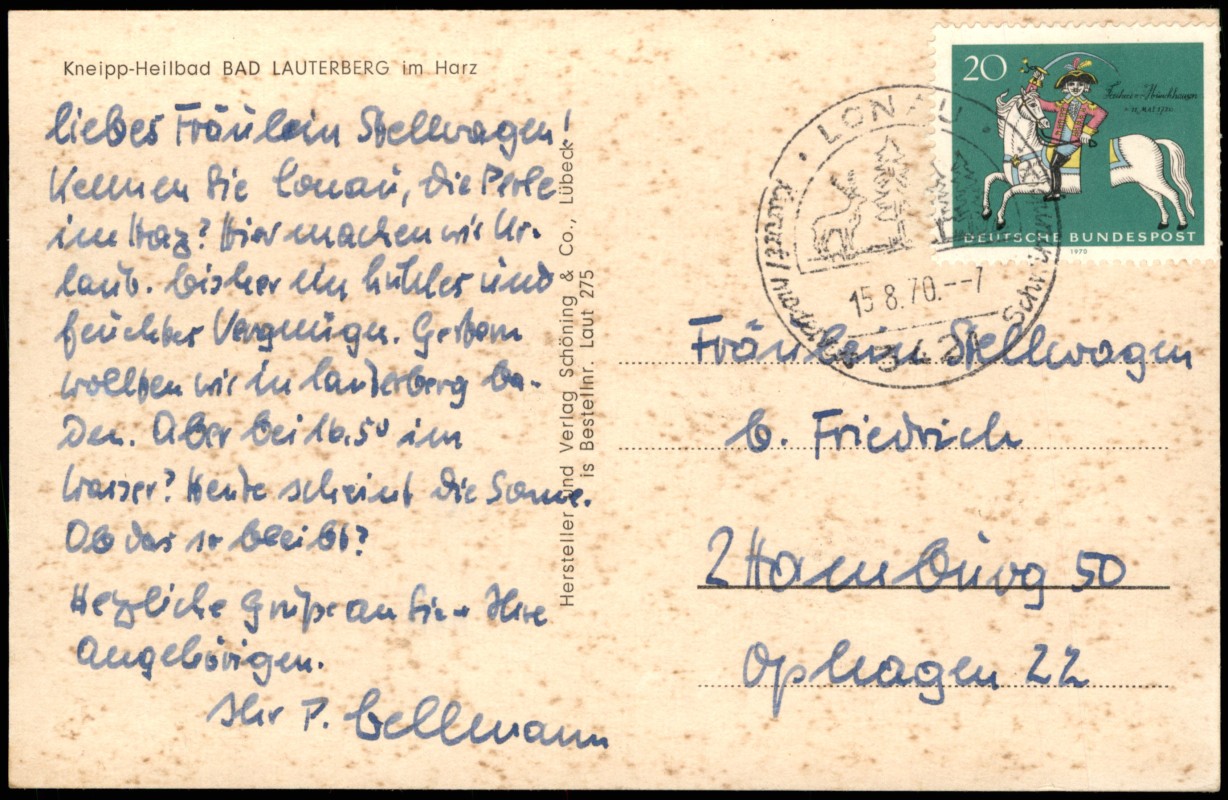 Kneipp-Heilbad BAD LAUTERBERG im Harz
liebes Fräulein Stellwagen!
Kennen Sie Lonau, die Perle
im Harz? Hier machen wir Ur-
laub. bisher ein kühles und
feuchtes Vergnügen. Gestern
wollten wir in Lauterberg ba-
den. Aber bei 16,5° im
Wasser? Heute scheint die Sonne.
Ob das so bleibt?
Herzliche Grüße an Sie + Ihre
Angehörigen.
Ihr P. Gellmann
Hersteller und Verlag Schöning & Co., Lübeck
is Bestellnr. Laut 275
20
22. MAI 1720
DEUTSCHE BUNDESPOST
1970
LONAU
15.8.70.--7
3421
Fräulein Stellwagen
b. Friedrich
2 Hamburg 50
Ophagen 22